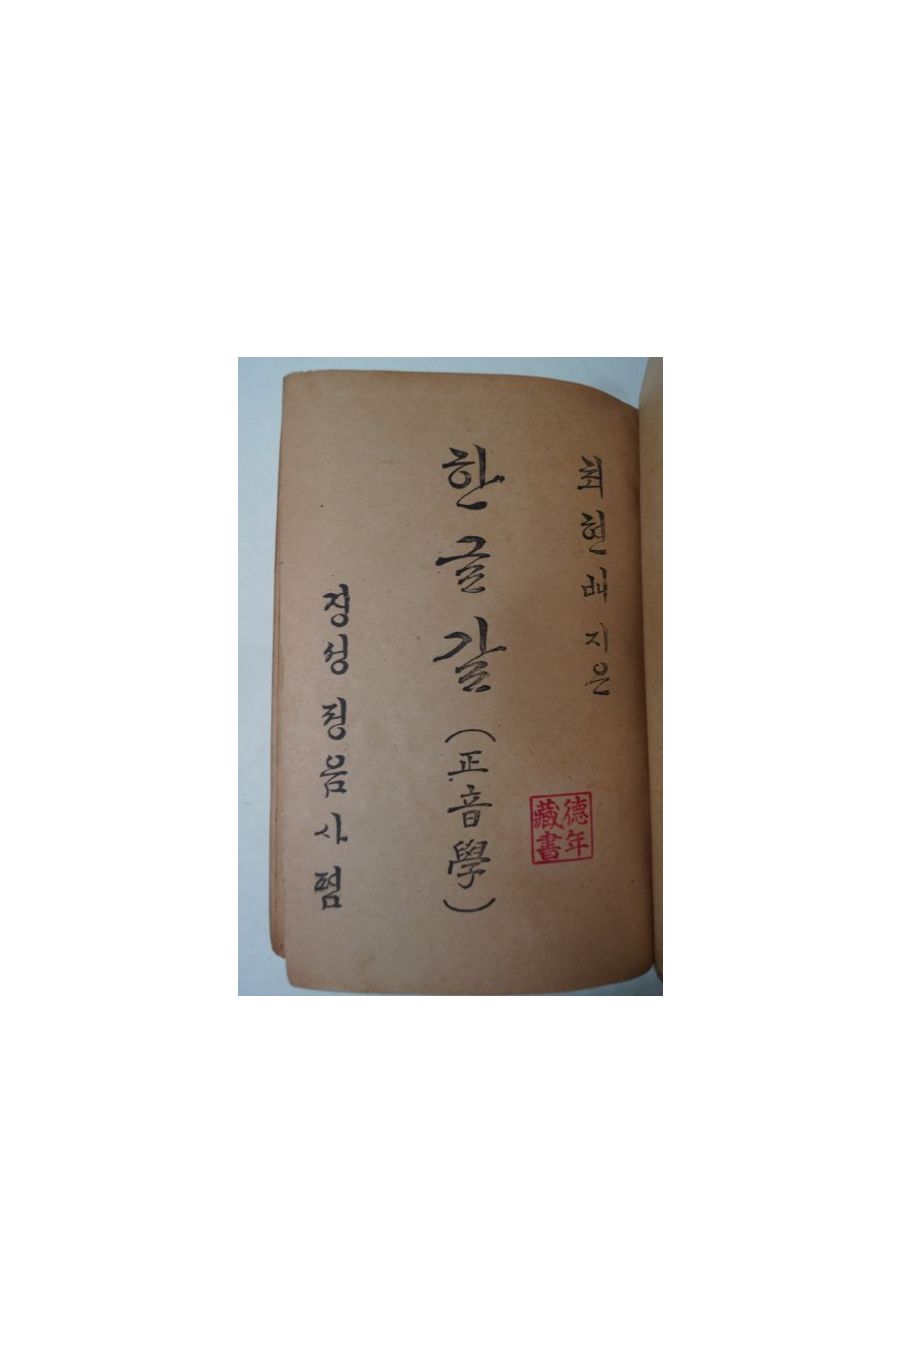 최현배 지은
한글갈(正音學)
경성 정음사 펌
德年
藏書